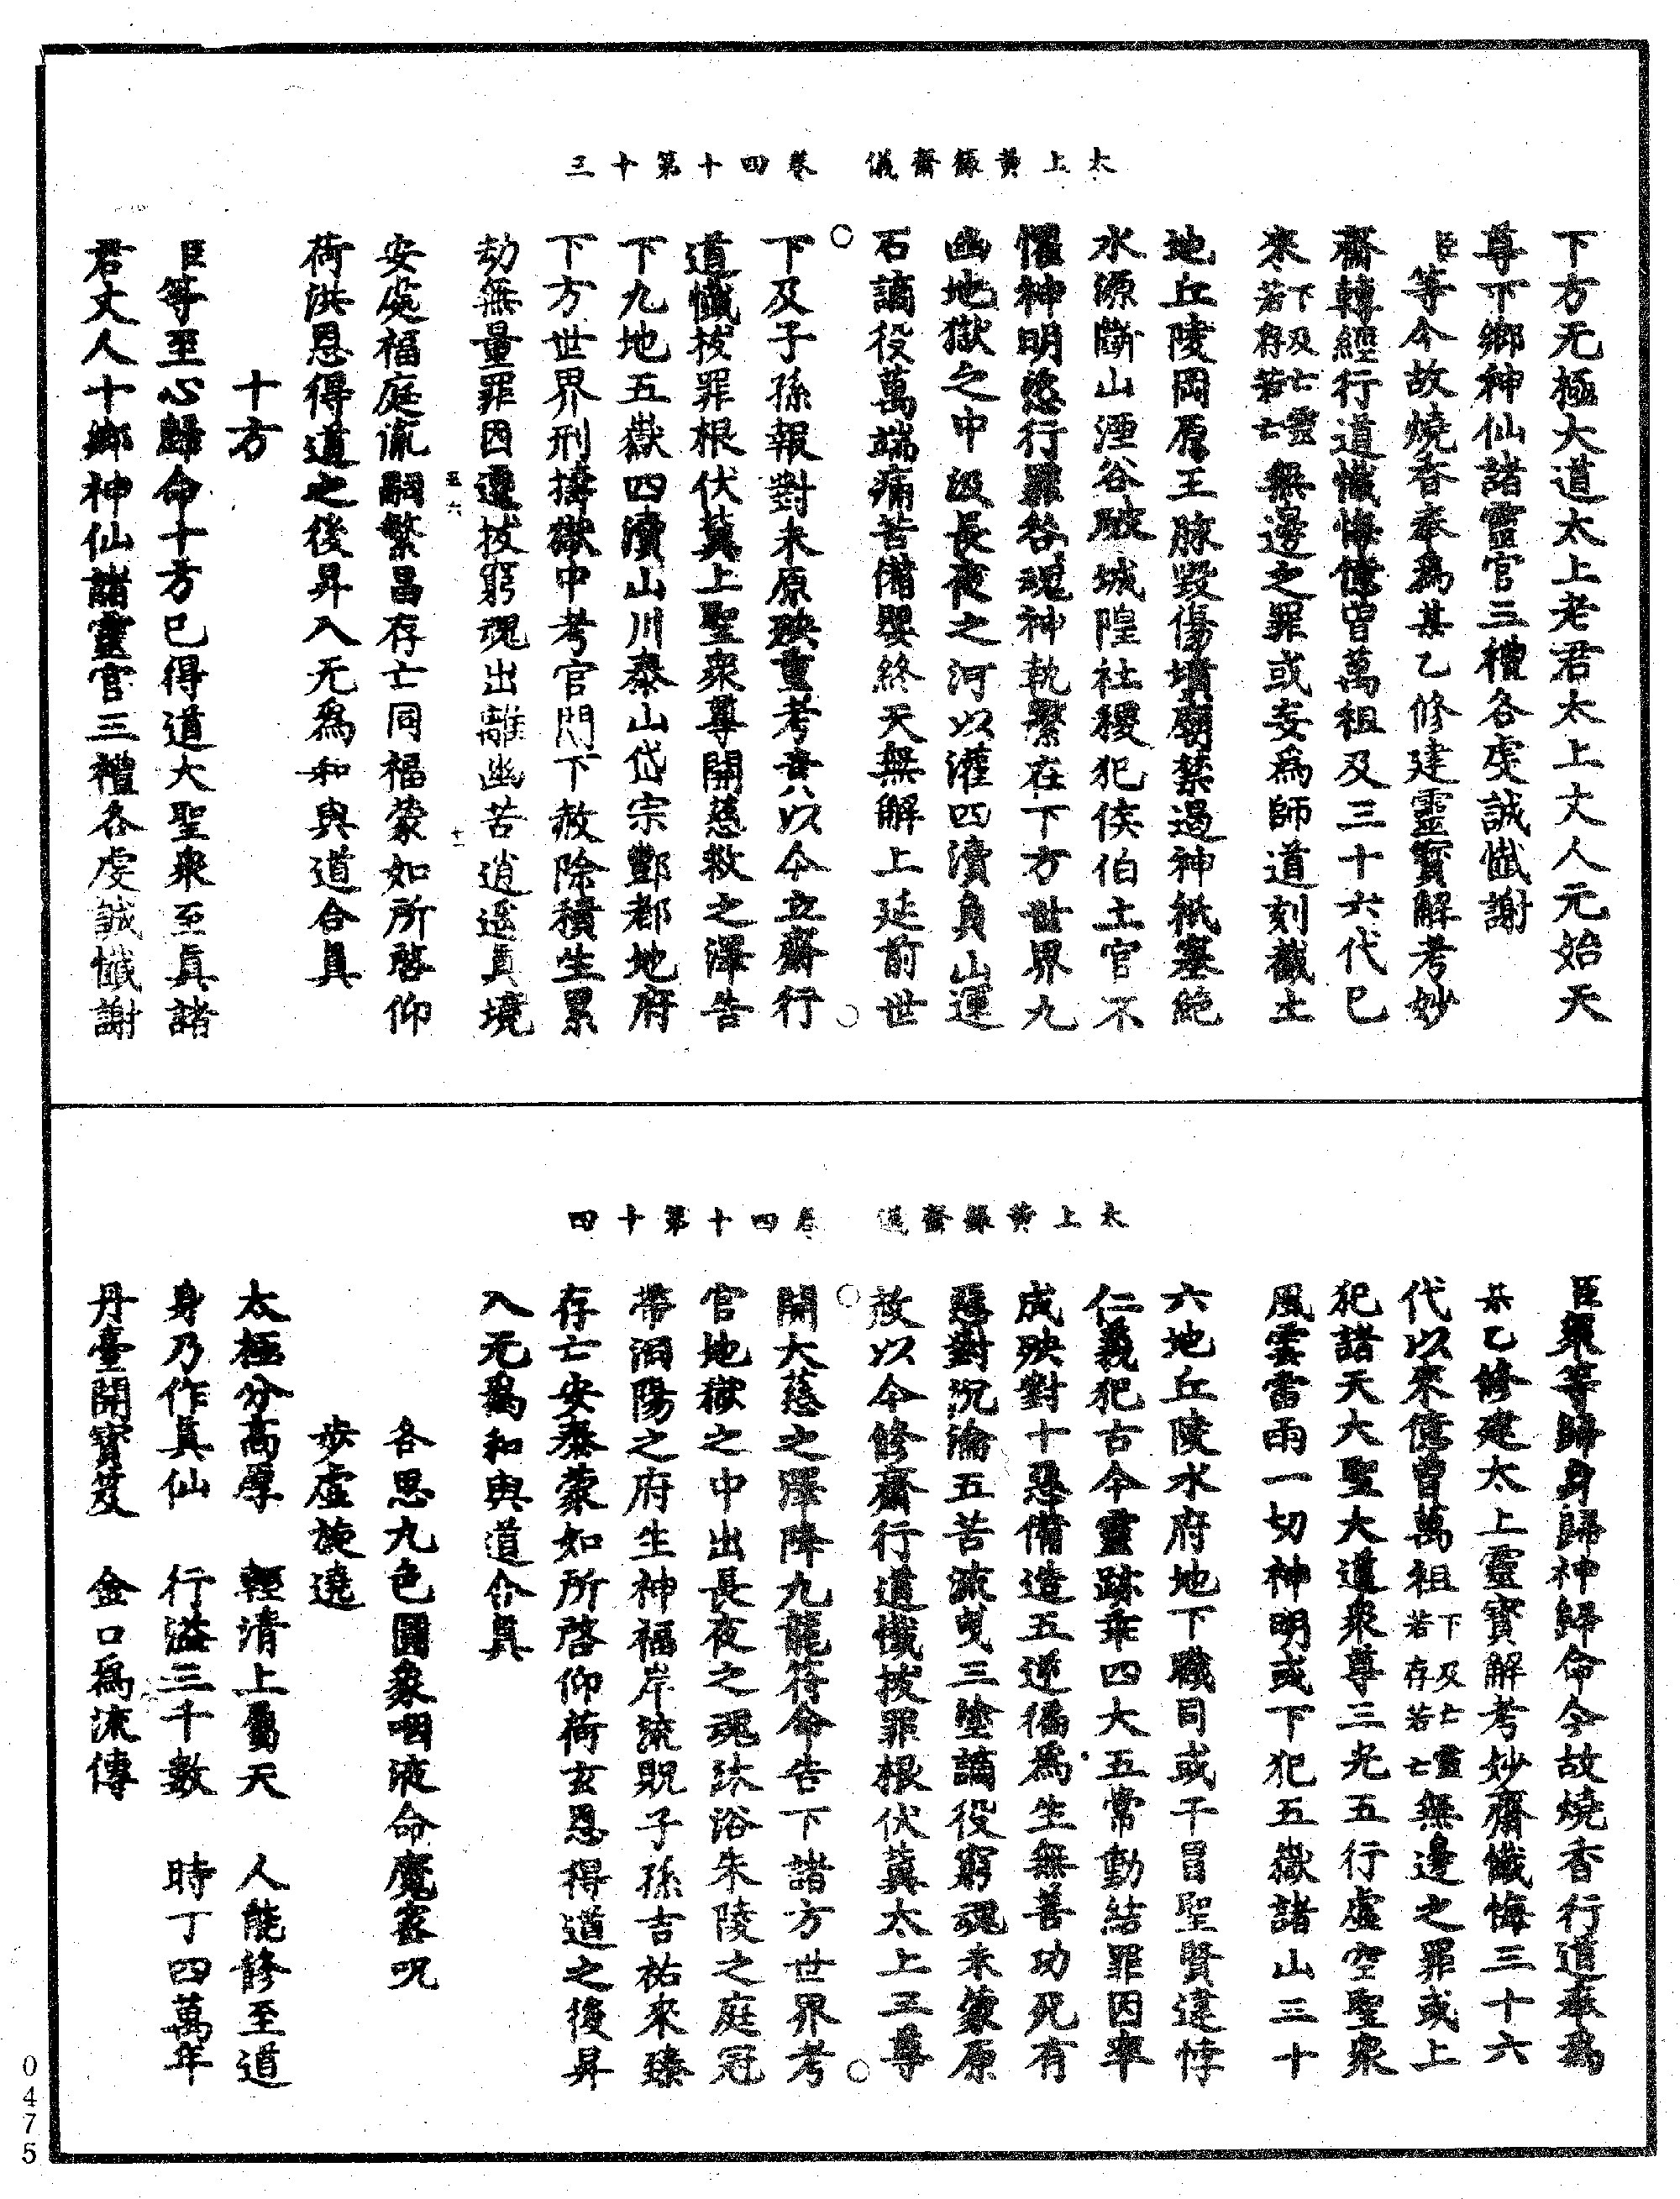 太上黃籙齋儀　卷四十第十三
下方无極大道太上老君太上丈人元始天
尊下鄉神仙諸靈官三禮各虔誠懺謝
臣等今故燒香奉為某乙修建靈寶解考妙
齋轉經行道懺悔億曾萬祖及三十六代已
來下及亡靈若存若亡無邊之罪或妄為師道刻截土
地丘陵岡原王脉毀傷墳廟禁遏神祇塞絕
水源斷山湮谷破城隍社稷犯侯伯土官不
懼神明恣行罪咎魂神執繫在下方世界九
幽地獄之中汲長夜之河以灌四瀆負山運
石謫役萬端痛苦備嬰終天無解上延前世
下及子孫報對未原殃重考責以今立齋行
道懺拔罪根伏冀上聖衆尊開慈救之澤告
下九地五嶽四瀆山川泰山岱宗酆都地府
下方世界刑擣獄中考官門下赦除積生累
劫無量罪因遷拔窮魂出離幽苦逍遥真境
安處福庭胤嗣繁昌存亡同福蒙如所啓仰
荷洪恩得道之後昇入无為和與道合真
十方
臣等至心歸命十方已得道大聖衆至真諸
君丈人十鄉神仙諸靈官三禮各虔誠懺謝
太上黃籙齋儀　卷四十第十四
臣衆等歸身歸神歸命今故燒香行道奉為
某乙修建太上靈寶解考妙齋懺悔三十六
代以來億曾萬祖下及亡靈若存若亡無邊之罪或上
犯諸天大聖大道衆尊三光五行虛空聖衆
風雲雷雨一切神明或下犯五嶽諸山三十
六地丘陵水府地下職司或干冒聖賢違悖
仁義犯古今靈跡乖四大五常動結罪因率
成殃對十惡備造五逆徧為生無善功死有
惡對沉淪五苦流曳三塗謫役窮魂未蒙原
赦以今修齋行道懺拔罪根伏冀太上三尊
開大慈之澤降九龍符命告下諸方世界考
官地獄之中出長夜之魂沐浴朱陵之庭冠
帶洞陽之府生神福岸流貺子孫吉祐來臻
存亡安泰蒙如所啓仰荷玄恩得道之後昇
入无為和與道合真
各思九色圓象咽液命魔密呪
步虛旋遶
太極分高厚　輕清上屬天　人能修至道
身乃作真仙　行溢三千數　時丁四萬年
丹臺開寶笈　金口為流傳
0475